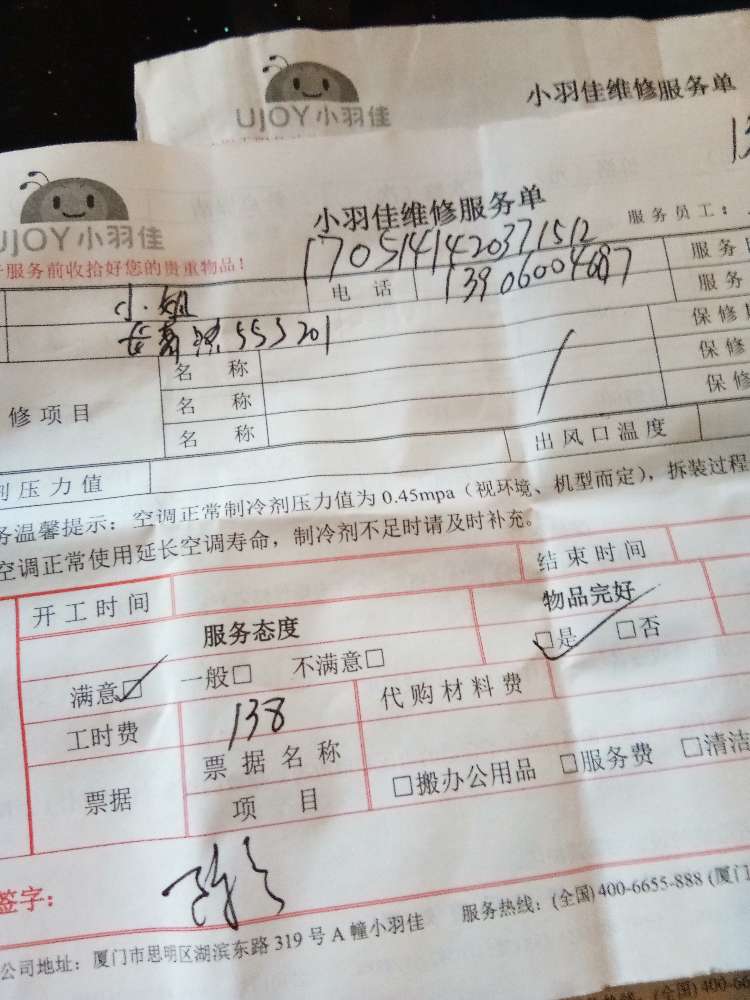 UJOY 小羽佳
小羽佳维修服务单
UJOY 小羽佳
小羽佳维修服务单
服务员工：
服务前收拾好您的贵重物品！
170514142037 1512
小姐
电 话
13906004687
服务
服务
553201
保修
名 称
保修
修项目
名 称
保修
名 称
剂压力值
出风口温度
务温馨提示：空调正常制冷剂压力值为 0.45mpa（视环境、机型而定），拆装过程
空调正常使用延长空调寿命，制冷剂不足时请及时补充。
开工时间
结束时间
服务态度
物品完好
满意☑ 一般□ 不满意□
☑是 □否
工时费
138
代购材料费
票据
票据名称
项 目
□搬办公用品 □服务费 □清洁
签字：
公司地址：厦门市思明区湖滨东路 319 号 A 幢小羽佳
服务热线：(全国)400-6655-888 (厦门